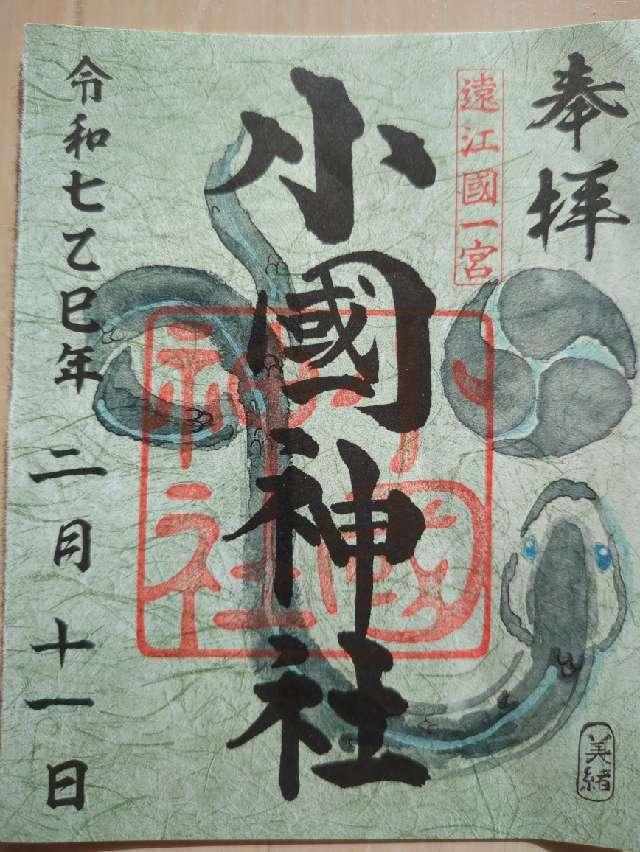 奉拝
遠江國一宮
小國神社
小國
神社
令和七乙巳年 二月十一日
美緒